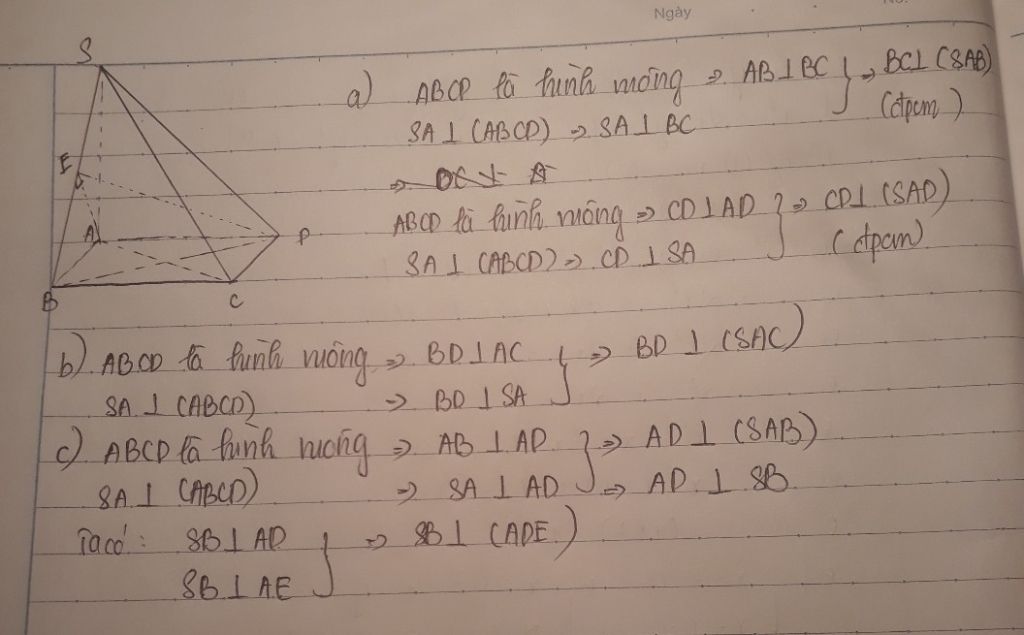 Ngày
No.
S
E
A
D
B
C
a) ABCD là hình vuông ⇒ AB⊥BC } ⇒ BC⊥(SAB)
SA⊥(ABCD) ⇒ SA⊥BC (đpcm)
⇒
ABCD là hình vuông ⇒ CD⊥AD } ⇒ CD⊥(SAD)
SA⊥(ABCD) ⇒ CD⊥SA (đpcm)
b) ABCD là hình vuông ⇒ BD⊥AC } ⇒ BD⊥(SAC)
SA⊥(ABCD) ⇒ BD⊥SA
c) ABCD là hình vuông ⇒ AB⊥AD } ⇒ AD⊥(SAB)
SA⊥(ABCD) ⇒ SA⊥AD ⇒ AD⊥SB
Ta có: SB⊥AD } ⇒ SB⊥(ADE)
SB⊥AE